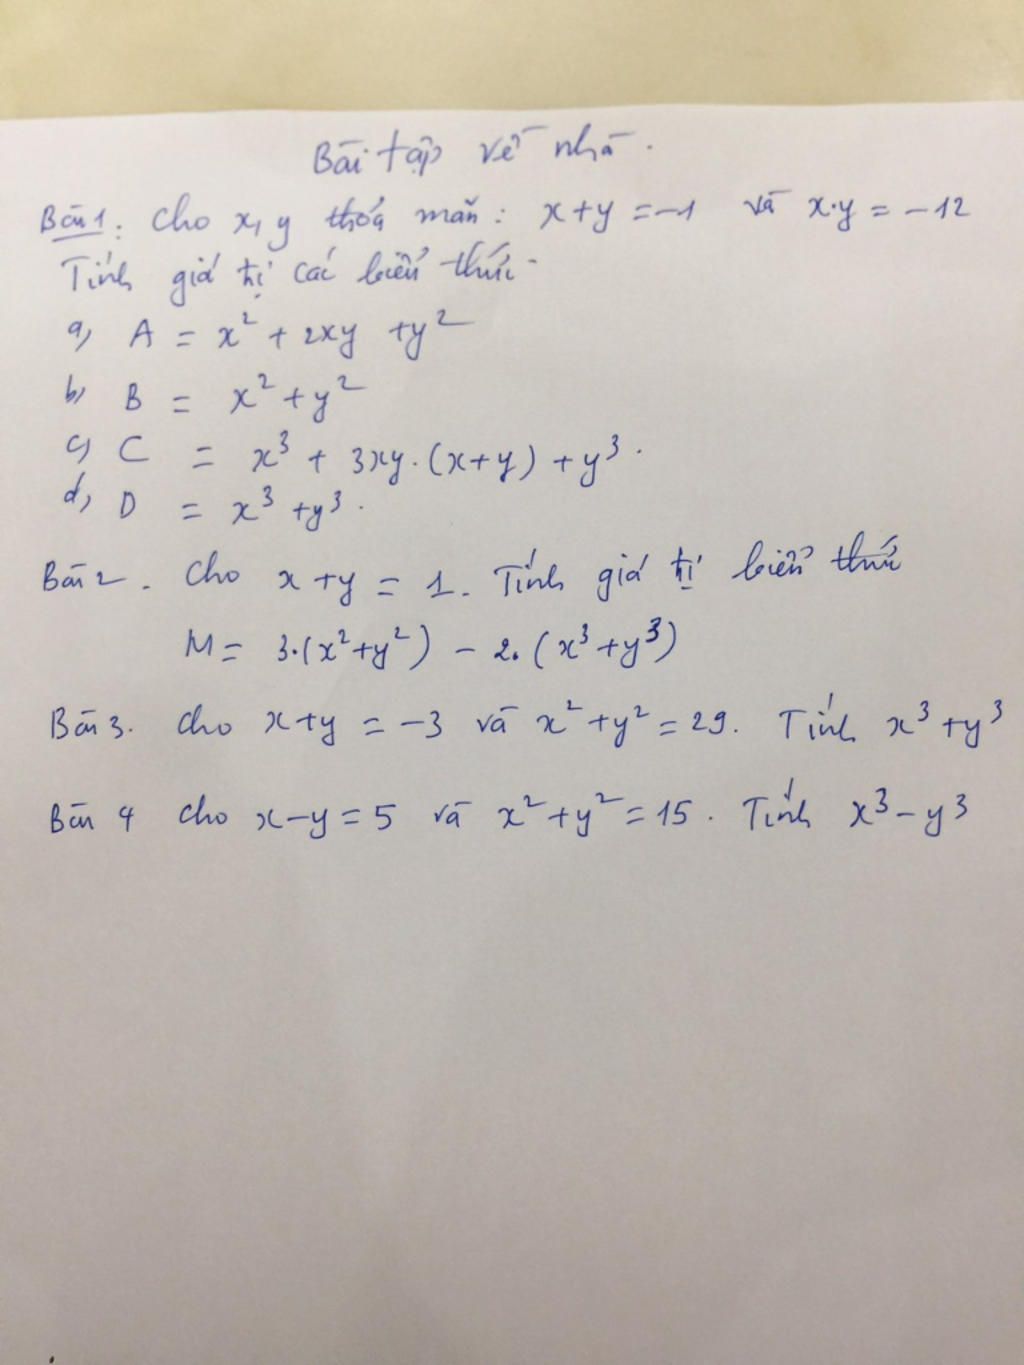 Bài tập về nhà.
Bài 1: Cho x, y thỏa mãn: x+y = -1 và x·y = -12
Tính giá trị các biểu thức.
a, A = x² + 2xy + y²
b, B = x² + y²
c, C = x³ + 3xy·(x+y) + y³.
d, D = x³ + y³.
Bài 2. Cho x+y = 1. Tính giá trị biểu thức
M = 3·(x²+y²) - 2·(x³+y³)
Bài 3. Cho x+y = -3 và x²+y² = 29. Tính x³+y³
Bài 4 Cho x-y = 5 và x²+y² = 15. Tính x³-y³